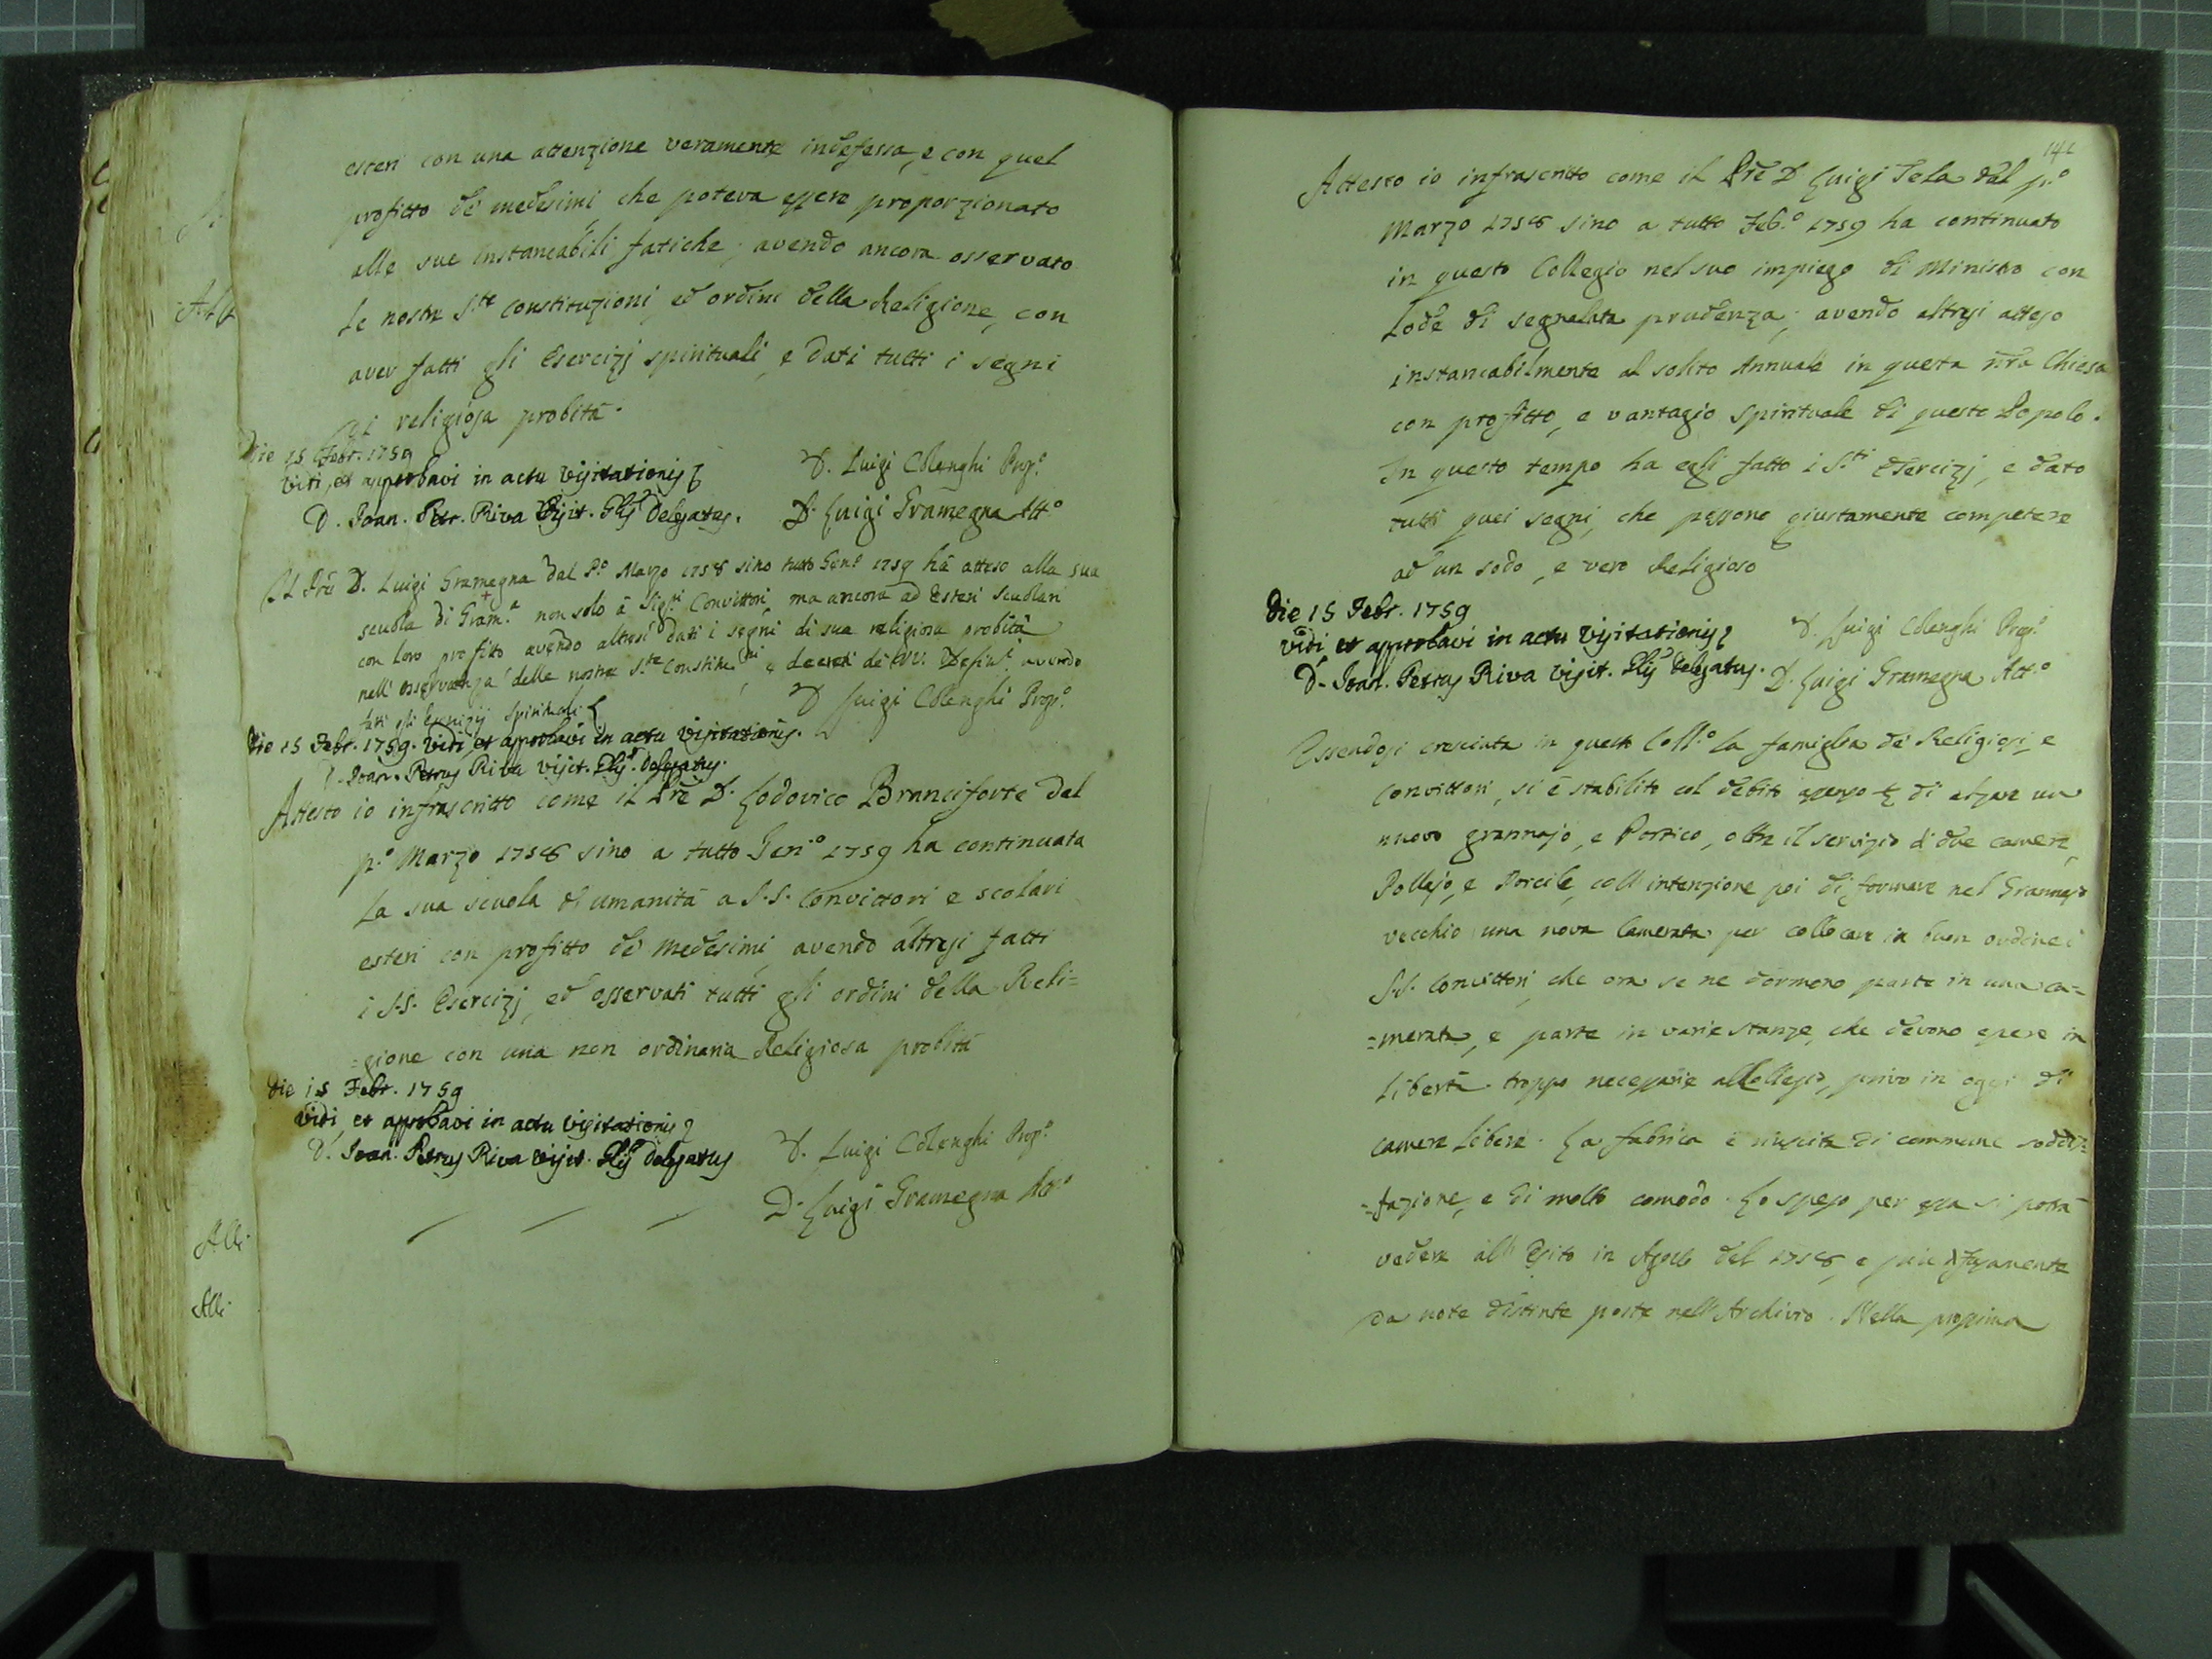 esteri con una attenzione veramente indefessa, e con quel
profitto de' medesimi che poteva essere proporzionato
alle sue instancabili fatiche; avendo ancora osservato
le nostre S.te constituzioni, ed ordini della Religione, con
aver fatti gli Esercizj spirituali, e dati tutti i segni
di religiosa probità.
Die 15 Febr. 1759
Vidi, et approbavi in actu Visitationis
D. Luigi Prep.o
D. Joan. Petr. Riva Visit. Delegatus.
D. Luigi Gramegna Att.o
Il D. Luigi Gramegna dal P.o Marzo 1758 sino tutto Gen.o 1759 hà atteso alla sua
scuola di Gram.a non solo à Sig.ri Convittori ma ancora ad Esteri Scuolari
con loro profitto avendo altresi dati i segni di sua religiosa probità
nell' osservanza delle nostre S.te Constitu.ni, e decreti de' VV. avendo
fatti gli Esercizij Spirituali
D Luigi Prep.o
Die 15 Febr. 1759. Vidi, et approbavi in actu Visitationis.
D. Joan. Petrus Riva Visit. Delegatus.
Attesto io infrascritto come il Pre D. Lodovico Branciforte dal
p.o Marzo 1758 sino a tutto Gen.o 1759 ha continuata
la sua scuola d'umanità a S.S. Convittori e scolari
esteri con profitto de' medesimi, avendo altresi fatti
i S.S. Esercizj, ed osservati tutti gli ordini della Reli=
=gione con una non ordinaria Religiosa probità
Die 15 Febr. 1759
Vidi, et approbavi in actu Visitationis
D. Joan. Petrus Riva Visit. Delegatus
D. Luigi Prep.o
D. Luigi Gramegna Att.o
Alli
Alli
Attesto io infrascritto come il Pre D. Luigi Tela dal p.o
Marzo 1758 sino a tutto Feb.o 1759 ha continuato
in questo Collegio nel suo impiego di Ministro con
lode di segnalata prudenza; avendo altresi atteso
instancabilmente al solito Annuale in questa nra Chiesa
con profitto, e vantagio spirituale di questo Popolo.
In questo tempo ha egli fatto i S.ti Esercizj, e dato
tutti quei segni, che possono giustamente competere
ad un sodo, e vero Religioso
Die 15 Febr. 1759
Vidi et approbavi in actu Visitationis
D. Luigi Prep.o
D. Joan. Petrus Riva Visit. Delegatus.
D. Luigi Gramegna Att.o
Essendosi cresciuta in questo Coll.o la famiglia de' Religiosi, e
Convittori, si è stabilito col debito di alzare un
nuovo grannajo, e Portico, oltre il servizio di due camere,
Pollajo, e Porcile, coll' intenzione poi di formare nel Grannajo
vecchio una nova Camerata per collocare in buon ordine i
S.S. Convittori, che ora se ne dormono parte in una ca=
=merata, e parte in varie stanze, che devono essere in
libertà troppo necessarie al Collegio, privo in oggi di
camere libere. La fabrica è riuscita di commune sodis=
=fazione, e di molto comodo. Lo speso per essa si potrà
vedere all' Esito in Agosto del 1758, e più
da note distinte poste nell' Archivio. Nella prossima